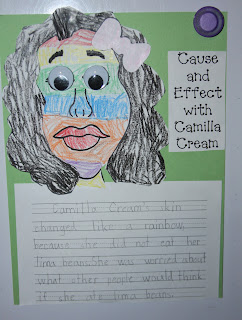 Cause
and
Effect
with
Camilla
Cream
Camilla Cream's skin
changed like a rainbow
because she did not eat her
lima beans. She was worried about
what other people would think
if she ate lima beans.